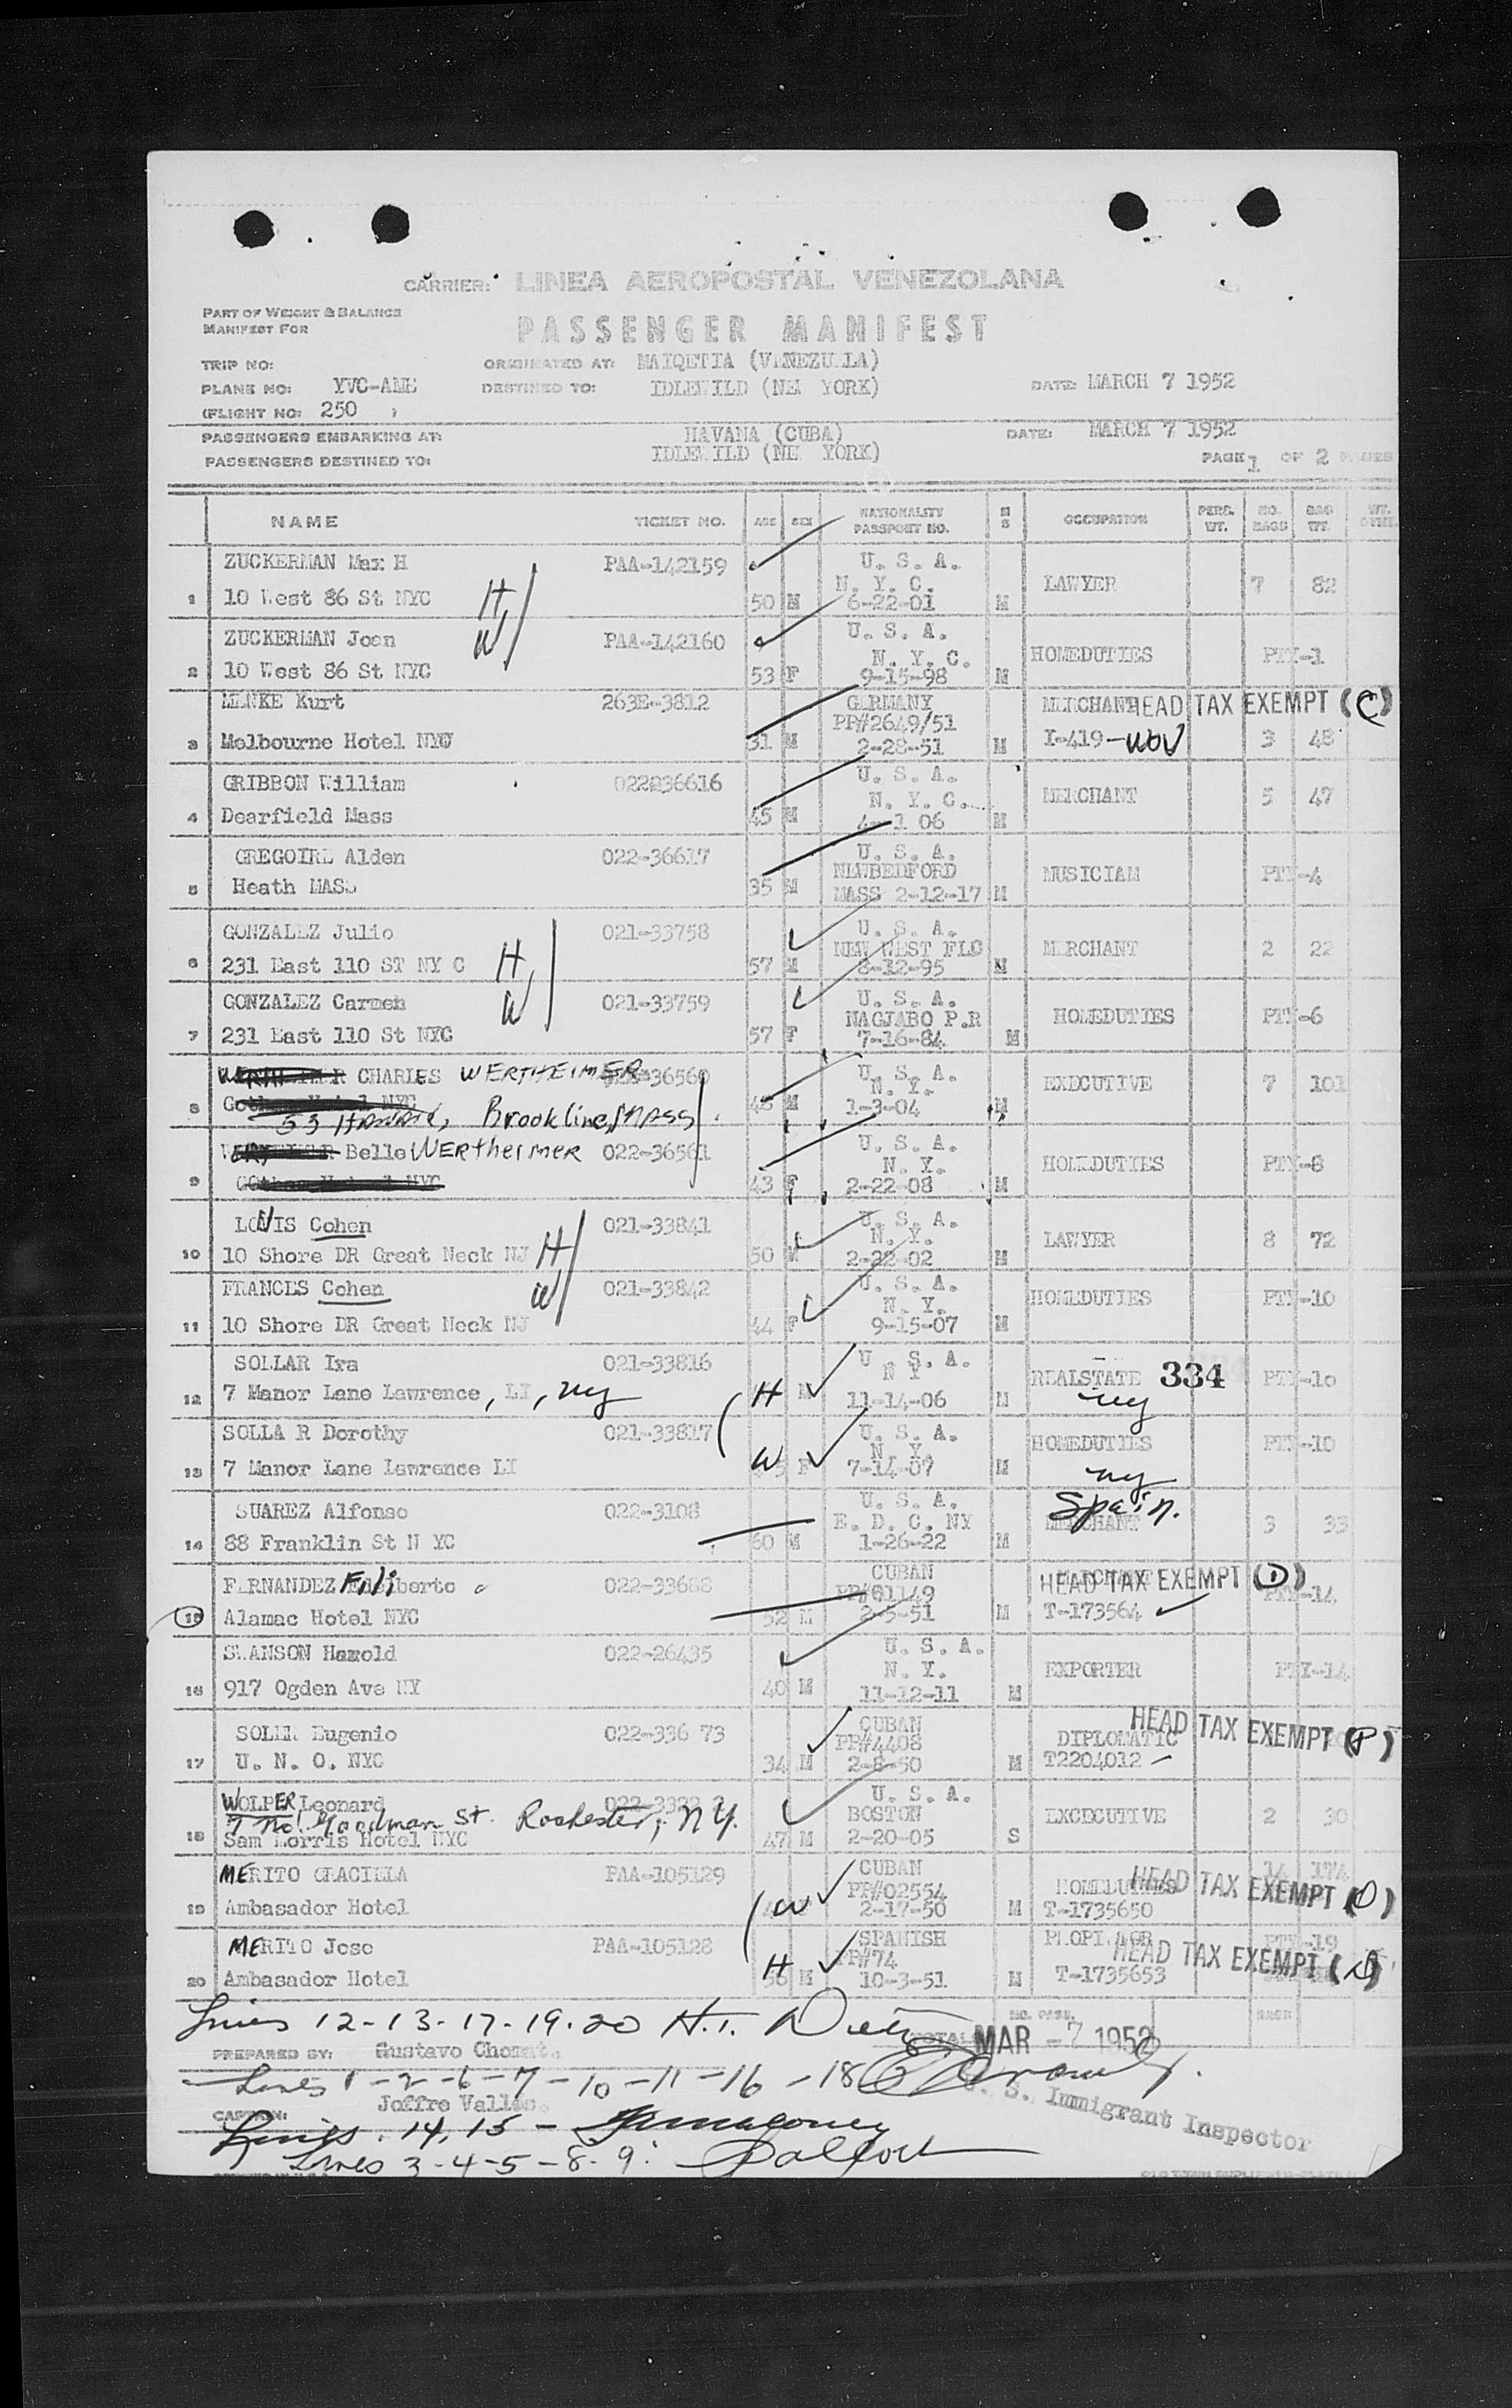 CARRIER: LINEA AEROPOSTAL VENEZOLANA
PART OF WEIGHT & BALANCE
MANIFEST FOR
PASSENGER MANIFEST
TRIP NO: ORIGINATED AT: MAIQETIA (VENEZUELA)
PLANE NO: YVC-AME DESTINED TO: IDLEWILD (NEW YORK) DATE: MARCH 7 1952
(FLIGHT NO: 250 )
PASSENGERS EMBARKING AT: HAVANA (CUBA) DATE: MARCH 7 1952
PASSENGERS DESTINED TO: IDLEWILD (NEW YORK) PAGE 1 OF 2 PAGES
NAME TICKET NO. AGE SEX NATIONALITY PASSPORT NO. M S OCCUPATION PERS. WT. NO. BAGS BAG WT. WT.
ZUCKERMAN Max H PAA-142159 U. S. A.
N. Y. C. LAWYER 7 82
1 10 West 86 St NYC H, 50 M 6-22-01 M
ZUCKERMAN Joan W PAA-142160 U. S. A.
N. Y. C. HOMEDUTIES PTY-1
2 10 West 86 St NYC 53 F 9-15-98 M
MENKE Kurt 263E-3812 GERMANY MERCHANT HEAD TAX EXEMPT (C)
PP#2649/51
3 Melbourne Hotel NYC 31 M 2-28-51 M I-419-WOV 3 48
GRIBBON William 022-36616 U. S. A.
N. Y. C. MERCHANT 5 47
4 Dearfield Mass 45 M 4- 1 06 M
GREGOIRE Alden 022-36617 U. S. A.
NEWBEDFORD MUSICIAM PTY-4
5 Heath MASS 35 M MASS 2-12-17 M
GONZALEZ Julio 021-33758 U. S. A.
NEW WEST FLO MERCHANT 2 22
6 231 East 110 ST NY C H, 57 M 8-12-95 M
GONZALEZ Carmen W 021-33759 U. S. A.
NAGJABO P.R HOMEDUTIES PTY-6
7 231 East 110 St NYC 57 F 7-16-84 M
CHARLES WERTHEIMER 36560 U. S. A.
N. Y. EXECUTIVE 7 101
8 53 Brookline, Mass 48 M 1-3-04 M
Belle Wertheimer 022-36561 U. S. A.
N. Y. HOMEDUTIES PTY-8
9 43 F 2-22-08 M
LOUIS Cohen 021-33841 U. S. A.
N. Y. LAWYER 8 72
10 10 Shore DR Great Neck NJ H 50 M 2-22-02 M
FRANCES Cohen W 021-33842 U. S. A.
N. Y. HOMEDUTIES PTY-10
11 10 Shore DR Great Neck NJ 44 F 9-15-07 M
SOLLAR Ira 021-33816 U. S. A.
N Y REALSTATE 334 PTY-10
12 7 Manor Lane Lawrence, LI, ny H M 11-14-06 M ny
SOLLA R Dorothy 021-33817 U. S. A.
N. Y. HOMEDUTIES PTY-10
13 7 Manor Lane Lawrence LI W F 7-14-07 M ny
SUAREZ Alfonso 022-3108 U. S. A. Spain.
E. D. C. NY MERCHANT 3 33
14 88 Franklin St N YC 60 M 1-26-22 M
FERNANDEZ Filiberto 022-33688 CUBAN HEAD TAX EXEMPT (D)
PP#01149 PTY-14
15 Alamac Hotel NYC 52 M 2-5-51 M T-173564
SWANSON Harold 022-26435 U. S. A.
N. Y. EXPORTER PTY-14
16 917 Ogden Ave NY 40 M 11-12-11 M
SOLER Eugenio 022-336 73 CUBAN HEAD TAX EXEMPT (P)
PP#4408 DIPLOMATIC
17 U. N. O. NYC 34 M 2-8-50 M T2204012
WOLPER Leonard U. S. A.
7 No. Goodman St. Rochester, N Y. BOSTON EXCECUTIVE 2 30
18 Sam Morris Hotel NYC 47 M 2-20-05 S
MERITO GRACIELA PAA-105129 CUBAN 14 174
PP#02554 HOMEDUTIES HEAD TAX EXEMPT (D)
19 Ambasador Hotel W 2-17-50 M T-1735650
MERITO Jose PAA-105128 SPANISH PTY-19
PP#74 HEAD TAX EXEMPT (D)
20 Ambasador Hotel H 56 M 10-3-51 M T-1735653
Lines 12-13-17-19-20 H.T. NO. PASS. BAGS
TOTAL MAR -7 1952
PREPARED BY: Gustavo
Lines 1-2-6-7-10-11-16-18
CAPTAIN: Joffre U. S. Immigrant Inspector
Lines 14, 15 -
Lines 3-4-5-8-9: